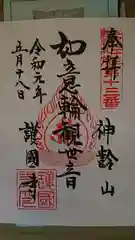 奉拝
第十三番
神齢山
如意輪観世音
護國寺
令和元年
五月十八日